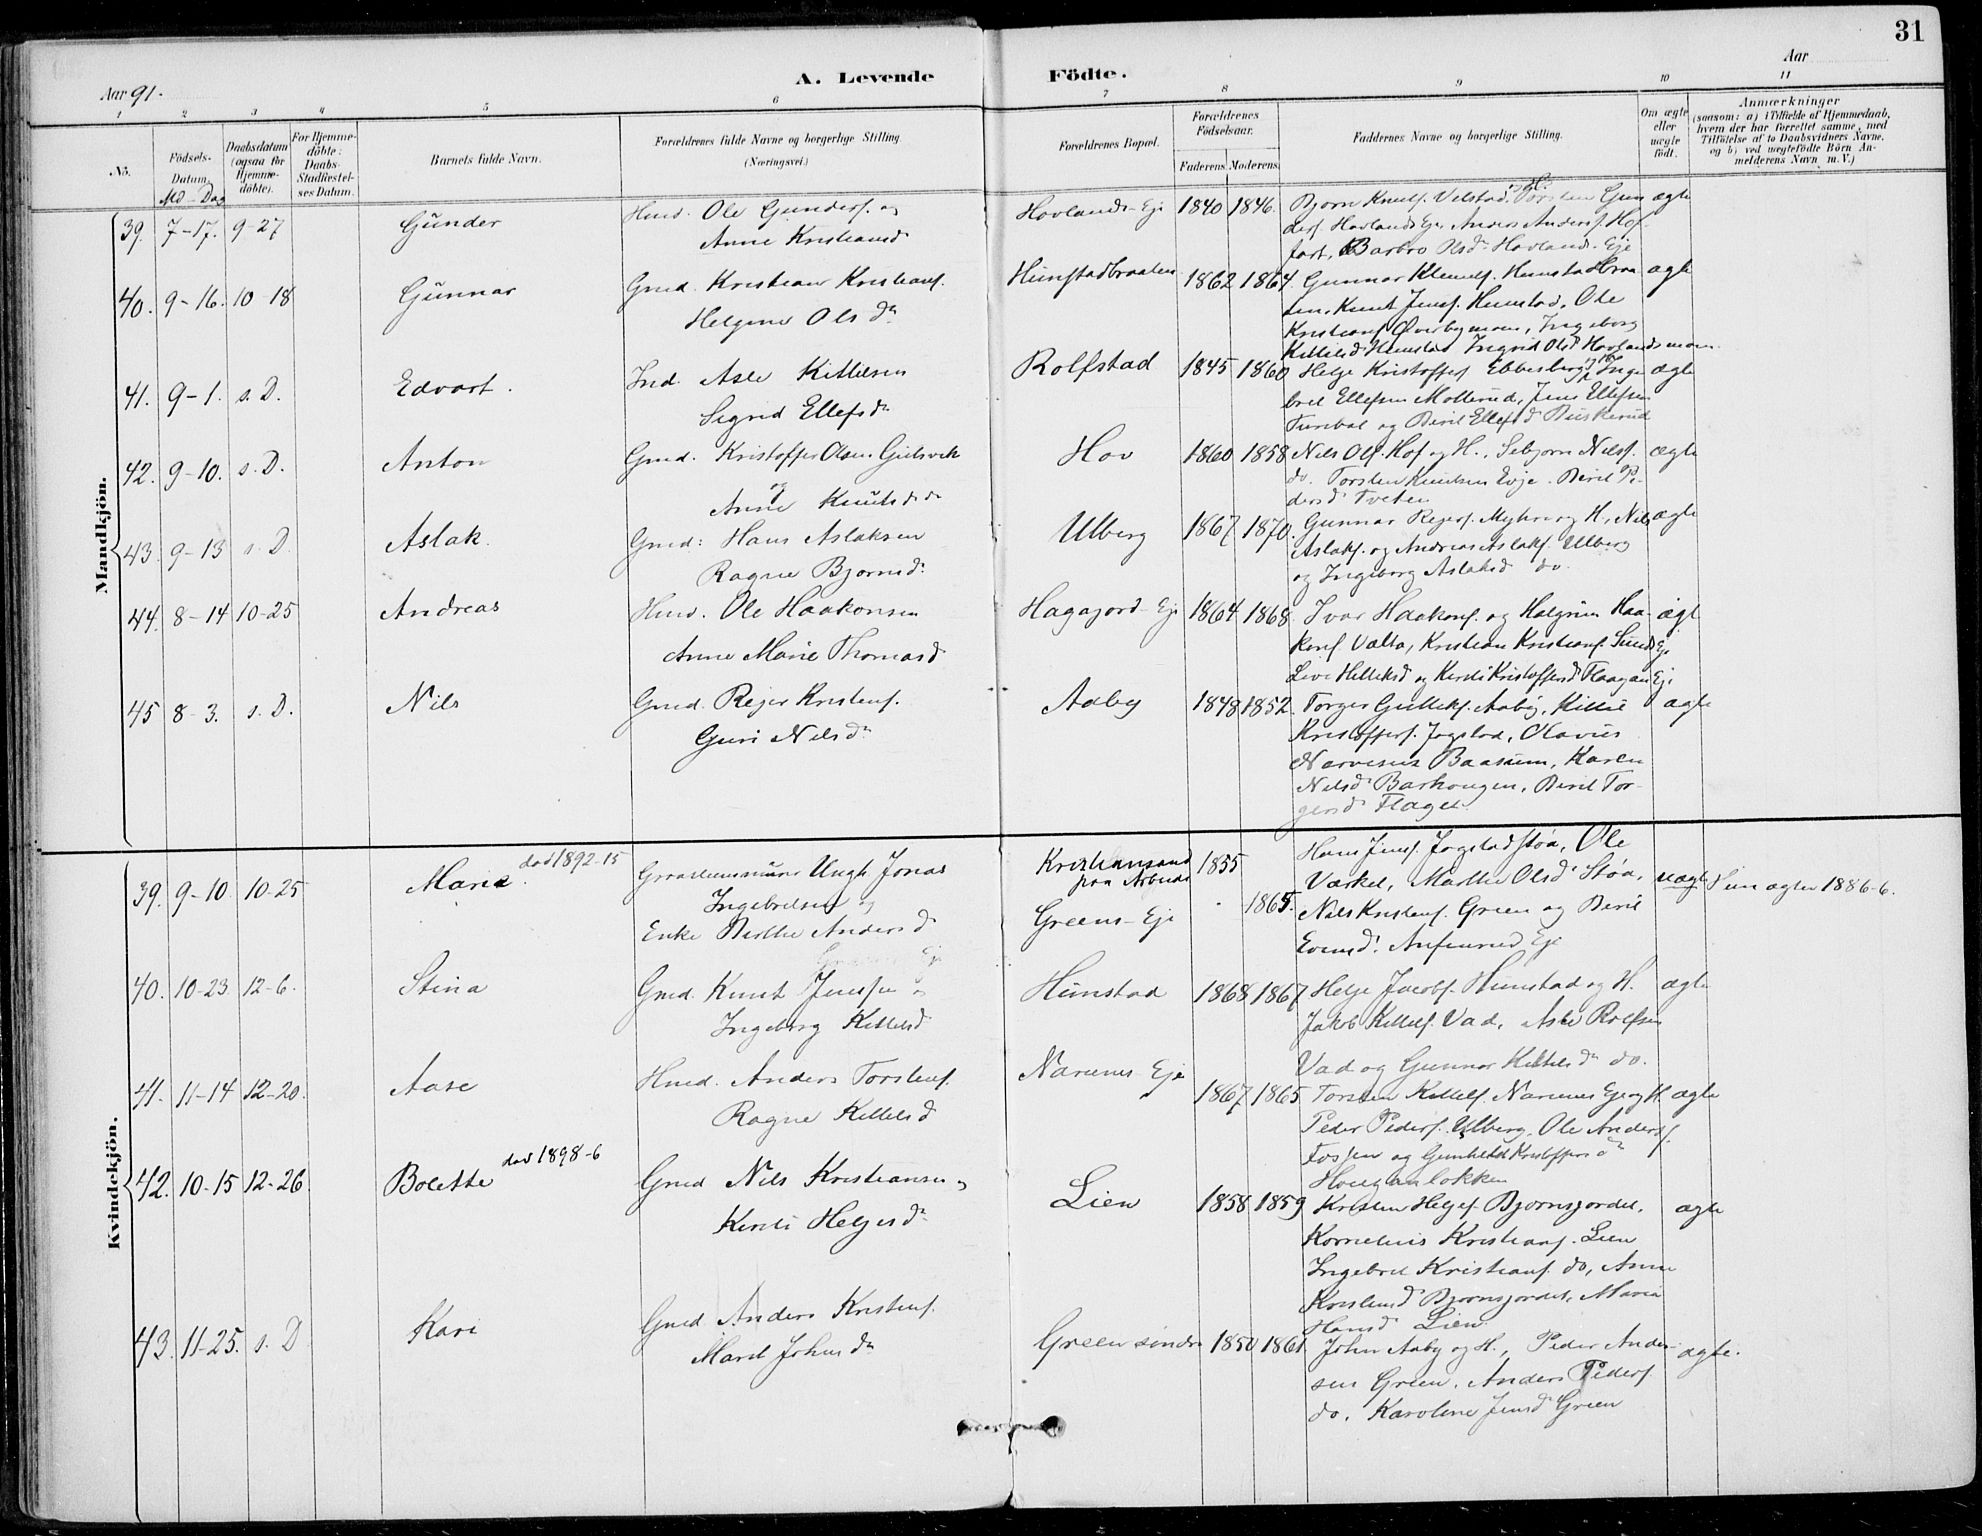 31
A. Levende Födte.
Aar 91.
Aar
1 2 3 4 5 6 7 8 9 10 11
No.
Födsels-Datum.
Md - Dag
Daabsdatum (ogsaa for Hjemme-döbte).
For Hjemme-döbte: Daabs-Stadfæstel-ses Datum.
Barnets fulde Navn.
Forældrenes fulde Navne og borgerlige Stilling.
(Næringsvei.)
Forældrenes Bopæl.
Forældrenes Födselsaar.
Faderens. Moderens.
Faddernes Navne og borgerlige Stilling.
Om ægte eller uægte födt.
Anmærkninger
(saasom: a) i Tilfælde af Hjemmedaab, hvem der har forrettet samme, med Tilföielse af to Daabsvidners Navne. og b) ved uægtefödte Börn Anmelderens Navn m. V.)
Mandkjön.
39. 7-17. 9-27 Gunder
Hmd. Ole Gunders. og
Anne Kristiansd
Hovlands-Eje 1840 1846.
Bjørn Knuts. Velstad, Torsten Gun
ders. Hovlands Eje Anders Anders. Hof
fart, Barbro Olsd. Hovlands-Eje
ægte
40. 9-16. 10-18 Gunnar
Gmd. Kristian Kristians.
Helgine Olsdr.
Hunstadbraaten 1862 1864.
Gunnar Klemets. Hunstadbraa
ten, Knut Jens. Hunstad, Ole
Kristians. Øverbymoen, Ingeborg
Kittilsd Hunstad Ingrid Olsd Hovlandsmoen
ægte
41. 9-1. s. D. Edvart.
Ind. Asle Kittilsen
Sigrid Ellefsdr
Rolfstad 1845 1860
Helge Kristoffers. Ebbesberg og H. Inge
bret Ellefsen Mollerud, Jens Ellefsen
Turibal og Berit Ellefsd Buskerud
ægte
42. 9-10. s. D. Anton
Gmd. Kristoffer Olsen Gulsvik
og
Anne Knutsdr
Hov 1860 1858
Nils Ols. Hof og H., Sebjørn Nils.
do. Torsten Knutsen Evje. Berit Pe-
dersd. Tveten
ægte
43. 9-13 s. D. Aslak.
Gmd: Hans Aslaksen
Ragne Bjørnsd.
Ulberg 1867 1870.
Gunnar Rejers. Myhre og H., Nils
Aslaks. og Andreas Aslaks. Ulberg
og Ingeborg Aslaksd do.
ægte
44. 8-14 10-25 Andreas
Hmd. Ole Haakonsen
Anne Marie Thomasd
Hagajord-Eje 1864 1868
Ivar Haakons. og Halgrim Haa-
kons. Valta, Kristian Kristians. Sunds Eje
Live Hilleksd og Kersti Kristoffersd Flaagan Eje
ægt
45 8-3. s. D. Nils
Gmd. Rejer Kristens.
Guri Nilsdr
Aaby 1848 1852.
Torger Gulleks. Aaby, Kittil
Kristoffers. Jogstad, Olavus
Narvesens Baasum, Karen
Nilsd Barkongen, Berit Tor-
gersd. Flaget
ægte
Kvindekjön.
39. 9-10 10-25 Marie død 1892-15
Ungk. Jonas
Ingebretsen og
Enke Berthe Andersd
Kristiansand
paa Arbeide
Greens-Eje
1855
1865.
Hans Jens. Jogstadstøa, Ole
Værket, Marthe Olsd. Støa,
Nils Kristens. Green og Berit
Evensd. Anfinrud Eje
uægte
1886-6.
40. 10-23 12-6. Stina
Gmd. Knut Jensen og
Ingeborg Kittilsd
Hunstad 1868 1867
Helge Jacobs. Hunstad og H.
Jakob Kittels. Vad, Asle Rolfsen
Vad og Gunnor Kittilsdr do.
ægte
41. 11-14 12-20. Aase
Hmd. Anders Torstens.
Ragne Kittelsd
Narvenes-Eje 1867 1865
Torsten Kittels. Narvenes Eje og H.
Peder Peders. Ulberg, Ole Anders.
Fosjen og Gunhild Kristoffersdr
Hougenløkken
ægte
42. 10-15 12-26 Bolette død 1898-6
Gmd Nils Kristiansen og
Kersti Helgesdr
Lien 1858 1859
Kristen Helges. Bjørnsjordet.
Kornelius Kristians. Lien
Ingebret Kristians. do, Anne
Kristensd Bjørnsjordet, Maria
Hansd. Lien
ægte
43. 11-25. s. D Kari
Gmd Anders Kristens.
Marit Johnsdr
Green søndre 1850 1861
John Aaby og H., Peder Ander-
sen Green, Anders Peders.
do. Karoline Jensd Green
ægte.